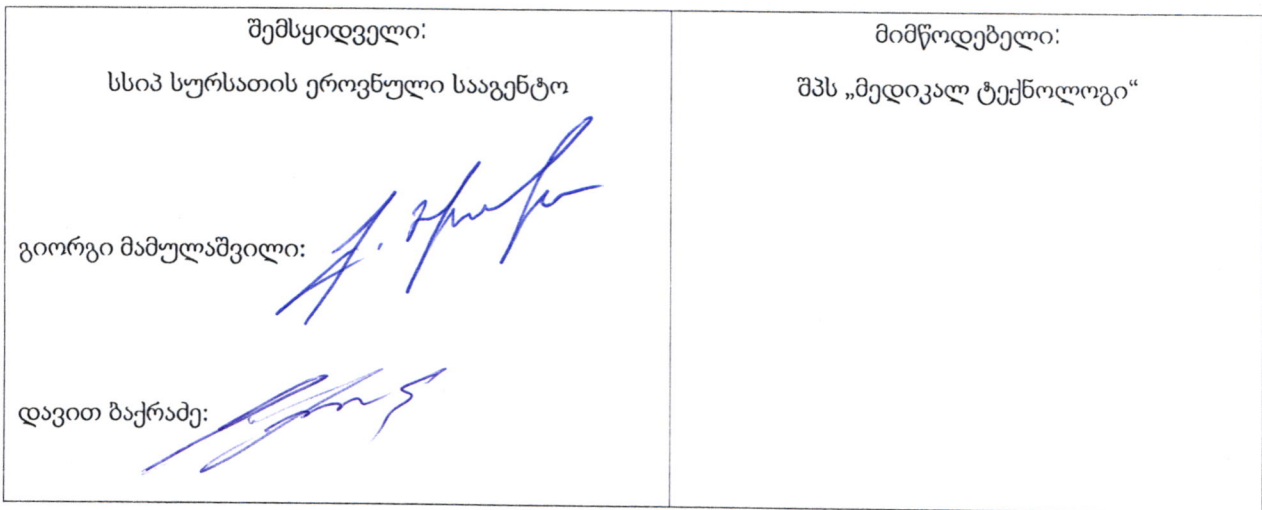 შემსყიდველი:
სსიპ სურსათის ეროვნული სააგენტო
გიორგი მამულაშვილი:
დავით ბაქრაძე:
მიმწოდებელი:
შპს „მედიკალ ტექნოლოგი“